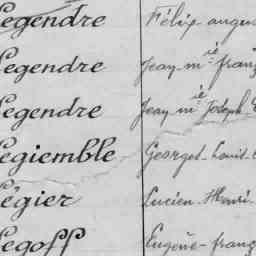 Legendre Félix augus
Legendre Jean Mie franç
Legendre Jean Mie Joseph
Legiemble Georges Louis
Légier Lucien Henri
Legoff Eugène franç